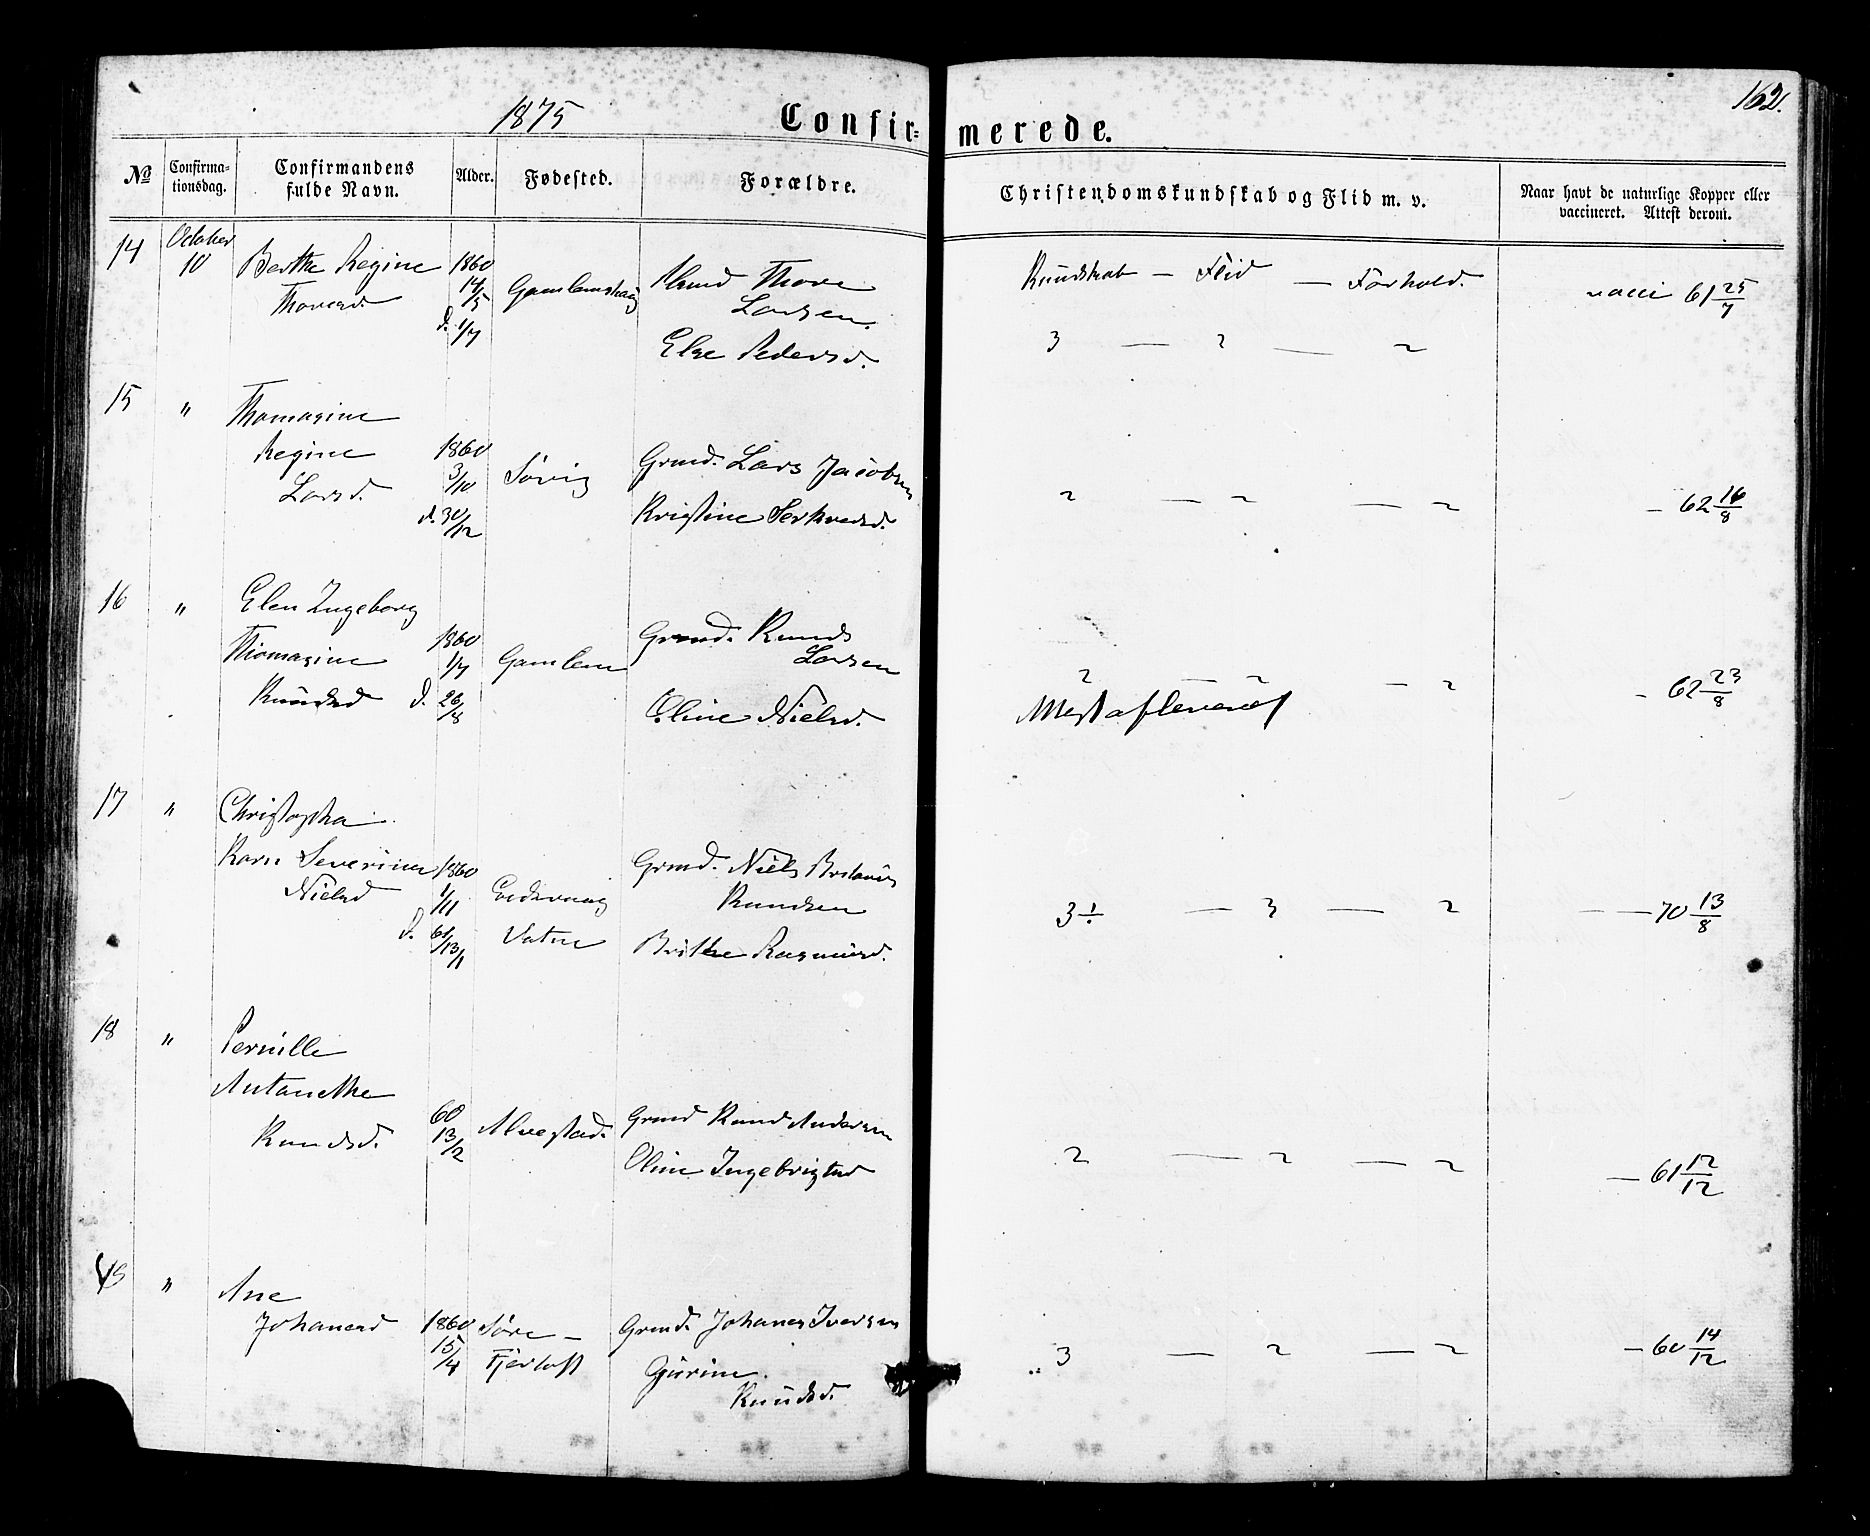 1875
Confir-
merede.
162.
No
Confirma-
tionsdag.
Confirmandens
fulde Navn.
Alder.
Fødested.
Forældre.
Christendomskundskab og Flid m. v.
Naar havt de naturlige Kopper eller
vaccineret. Attest derom.
14
October
10
Berthe Regine
Thoresd.
1860
14/5
d. 1/7
Gamlemshaug
Thore
Larsen.
Else Pedersd.
Kundskab — Flid — Forhold.
3 — 2 — 2
vacci 61 25/7
15
"
Thomasine
Regine
Larsd.
1860
3/10
d. 30/12
Søvig
Grmd. Lars Jacobsen
Kristine Sexhvedsd.
2 — 2 — 2
— 62 16/8
16
"
Elen Ingeborg
Thomasine
Knudsd
1860
1/7
d. 26/8
Gamlem
Grmd. Knud
Larsen
Oline Nielsd.
2 — 2 — 2
62 23/8
17
"
Christopha
Karn Severine
Nielsd
1860
1/11
d. 61
13/1
Vatne
Grmd. Niels
Knudsen
Brithe Rasmusd.
3 ÷ — 3 — 2
— — 70 13/8
18
"
Pernille
Antonethe
Knudsd.
60
13/2
Alvestad.
Grmd Knud Andersen
Oline Ingebrigtsd
2 — 2 — 2
— 61 12/12
19
"
Ane
Johanesd
1860
15/4
Søre —
Fjørtoft
Grmd. Johanes Iversen
Gjurine.
Knudsd.
3 — 2 — 2
— 60 14/12